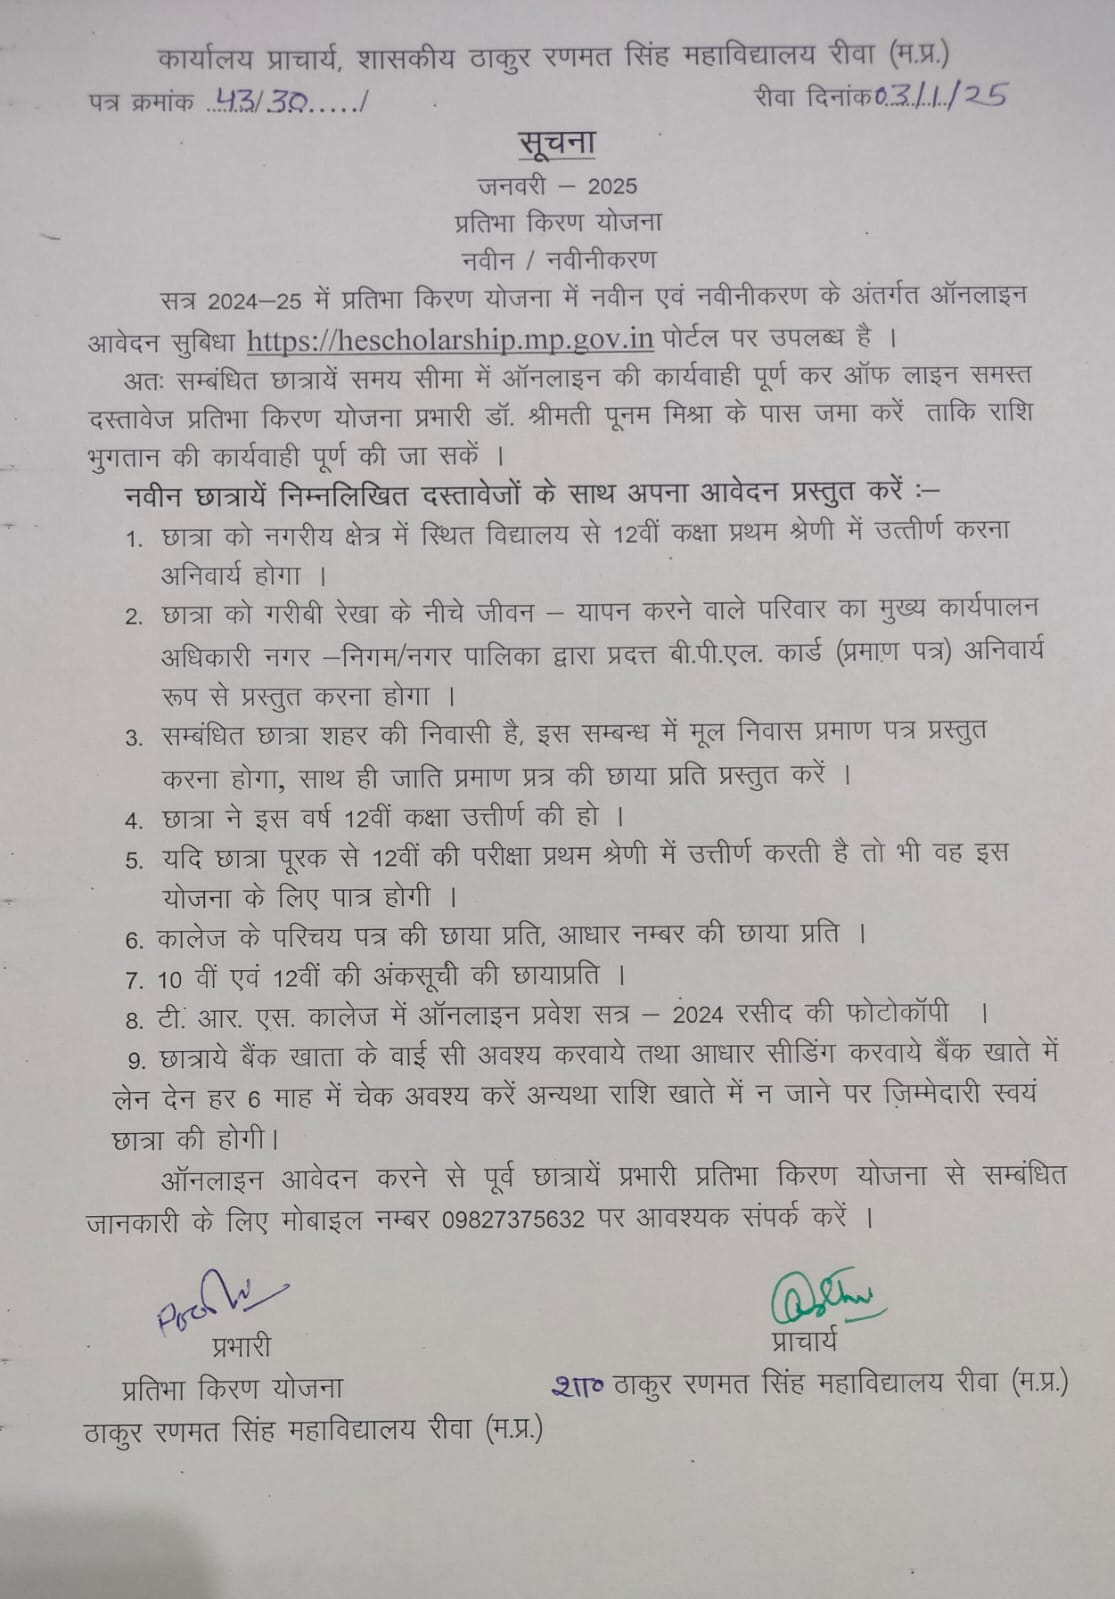 कार्यालय प्राचार्य, शासकीय ठाकुर रणमत सिंह महाविद्यालय रीवा (म.प्र.)
पत्र क्रमांक ..43/30...../
रीवा दिनांक 03/1/25
सूचना
जनवरी – 2025
प्रतिभा किरण योजना
नवीन / नवीनीकरण
सत्र 2024–25 में प्रतिभा किरण योजना में नवीन एवं नवीनीकरण के अंतर्गत ऑनलाइन
आवेदन सुबिधा https://hescholarship.mp.gov.in पोर्टल पर उपलब्ध है ।
अतः सम्बंधित छात्रायें समय सीमा में ऑनलाइन की कार्यवाही पूर्ण कर ऑफ लाइन समस्त
दस्तावेज प्रतिभा किरण योजना प्रभारी डॉ. श्रीमती पूनम मिश्रा के पास जमा करें ताकि राशि
भुगतान की कार्यवाही पूर्ण की जा सकें ।
नवीन छात्रायें निम्नलिखित दस्तावेजों के साथ अपना आवेदन प्रस्तुत करें :–
1. छात्रा को नगरीय क्षेत्र में स्थित विद्यालय से 12वीं कक्षा प्रथम श्रेणी में उत्तीर्ण करना
अनिवार्य होगा ।
2. छात्रा को गरीबी रेखा के नीचे जीवन – यापन करने वाले परिवार का मुख्य कार्यपालन
अधिकारी नगर –निगम/नगर पालिका द्वारा प्रदत्त बी.पी.एल. कार्ड (प्रमाण पत्र) अनिवार्य
रूप से प्रस्तुत करना होगा ।
3. सम्बंधित छात्रा शहर की निवासी है, इस सम्बन्ध में मूल निवास प्रमाण पत्र प्रस्तुत
करना होगा, साथ ही जाति प्रमाण प्रत्र की छाया प्रति प्रस्तुत करें ।
4. छात्रा ने इस वर्ष 12वीं कक्षा उत्तीर्ण की हो ।
5. यदि छात्रा पूरक से 12वीं की परीक्षा प्रथम श्रेणी में उत्तीर्ण करती है तो भी वह इस
योजना के लिए पात्र होगी ।
6. कालेज के परिचय पत्र की छाया प्रति, आधार नम्बर की छाया प्रति ।
7. 10 वीं एवं 12वीं की अंकसूची की छायाप्रति ।
8. टी. आर. एस. कालेज में ऑनलाइन प्रवेश सत्र – 2024 रसीद की फोटोकॉपी ।
9. छात्राये बैंक खाता के वाई सी अवश्य करवाये तथा आधार सीडिंग करवाये बैंक खाते में
लेन देन हर 6 माह में चेक अवश्य करें अन्यथा राशि खाते में न जाने पर ज़िम्मेदारी स्वयं
छात्रा की होगी।
ऑनलाइन आवेदन करने से पूर्व छात्रायें प्रभारी प्रतिभा किरण योजना से सम्बंधित
जानकारी के लिए मोबाइल नम्बर 09827375632 पर आवश्यक संपर्क करें ।
प्रभारी
प्राचार्य
प्रतिभा किरण योजना
शा० ठाकुर रणमत सिंह महाविद्यालय रीवा (म.प्र.)
ठाकुर रणमत सिंह महाविद्यालय रीवा (म.प्र.)